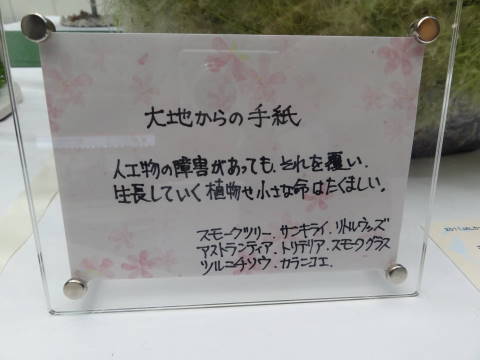 大地からの手紙
人工物の障害があっても、それを覆い、
生長していく植物や小さな命はたくましい。
スモークツリー、サンキライ、リトルウッズ
アストランティア、トリテリア、スモークグラス
ツルニチソウ、カランコエ、